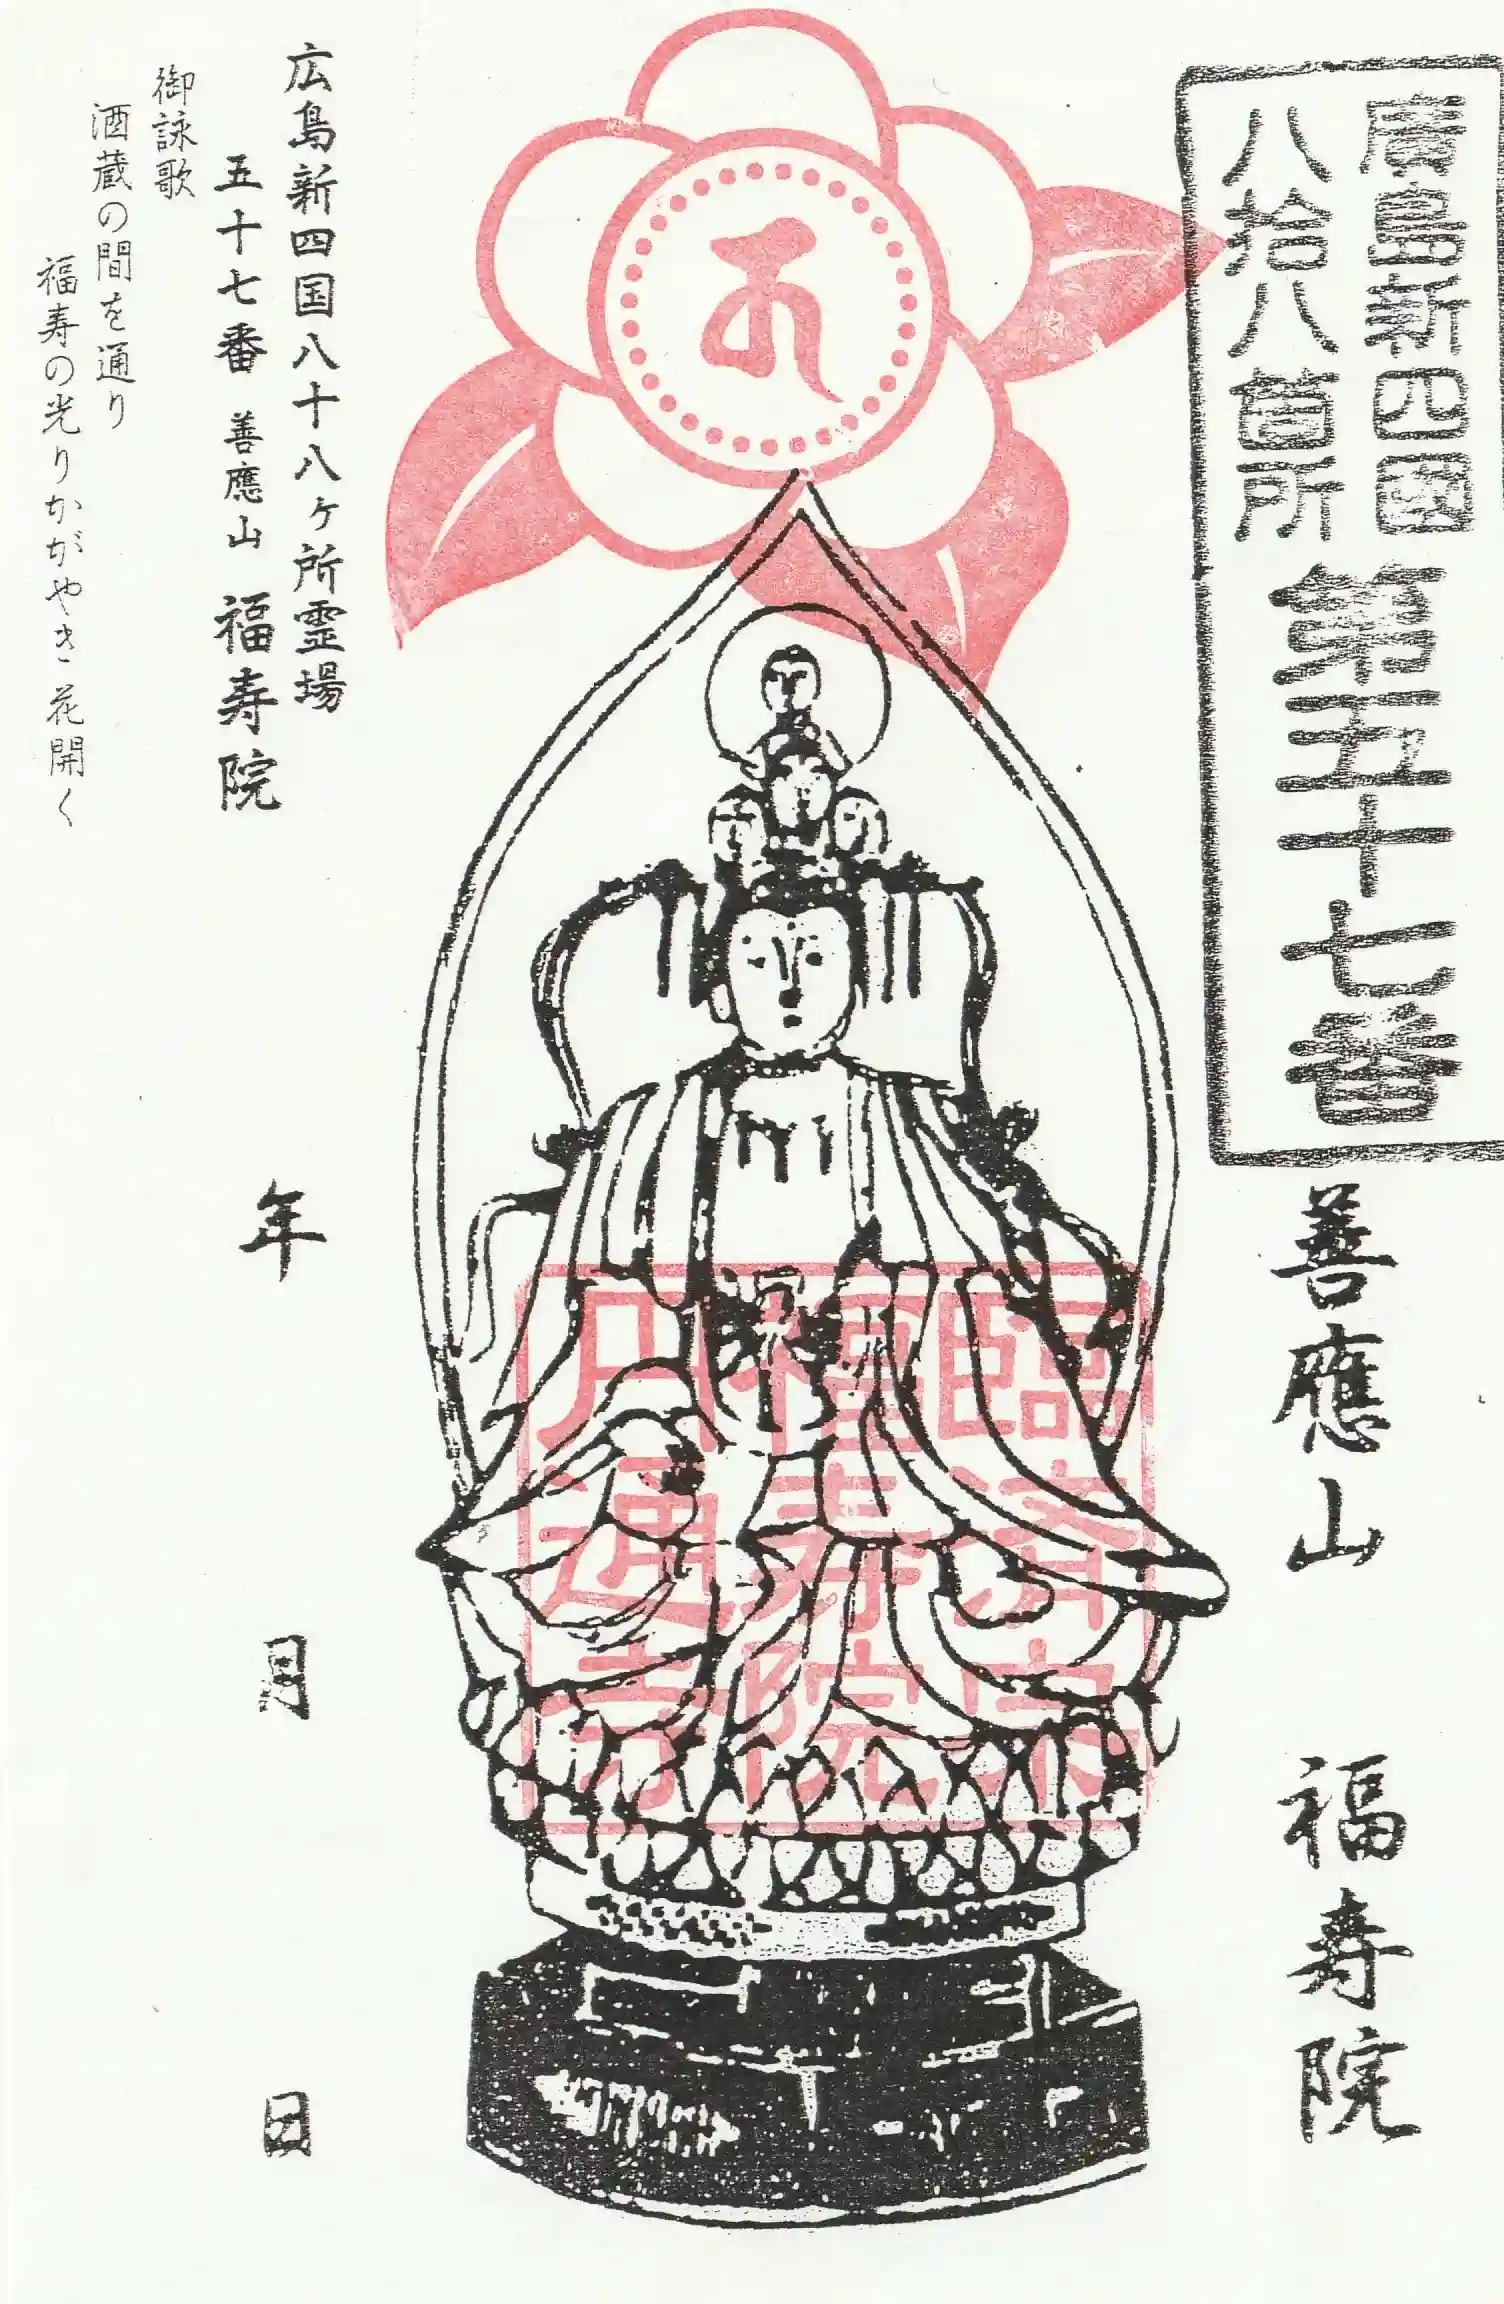 廣島新四國
八拾八箇所
第五十七番
善應山 福寿院
臨済宗
福寿院
円通寺
広島新四国八十八ヶ所霊場
五十七番 善應山 福寿院
御詠歌
酒蔵の間を通り
福寿の光りかがやき花開く
年 月 日